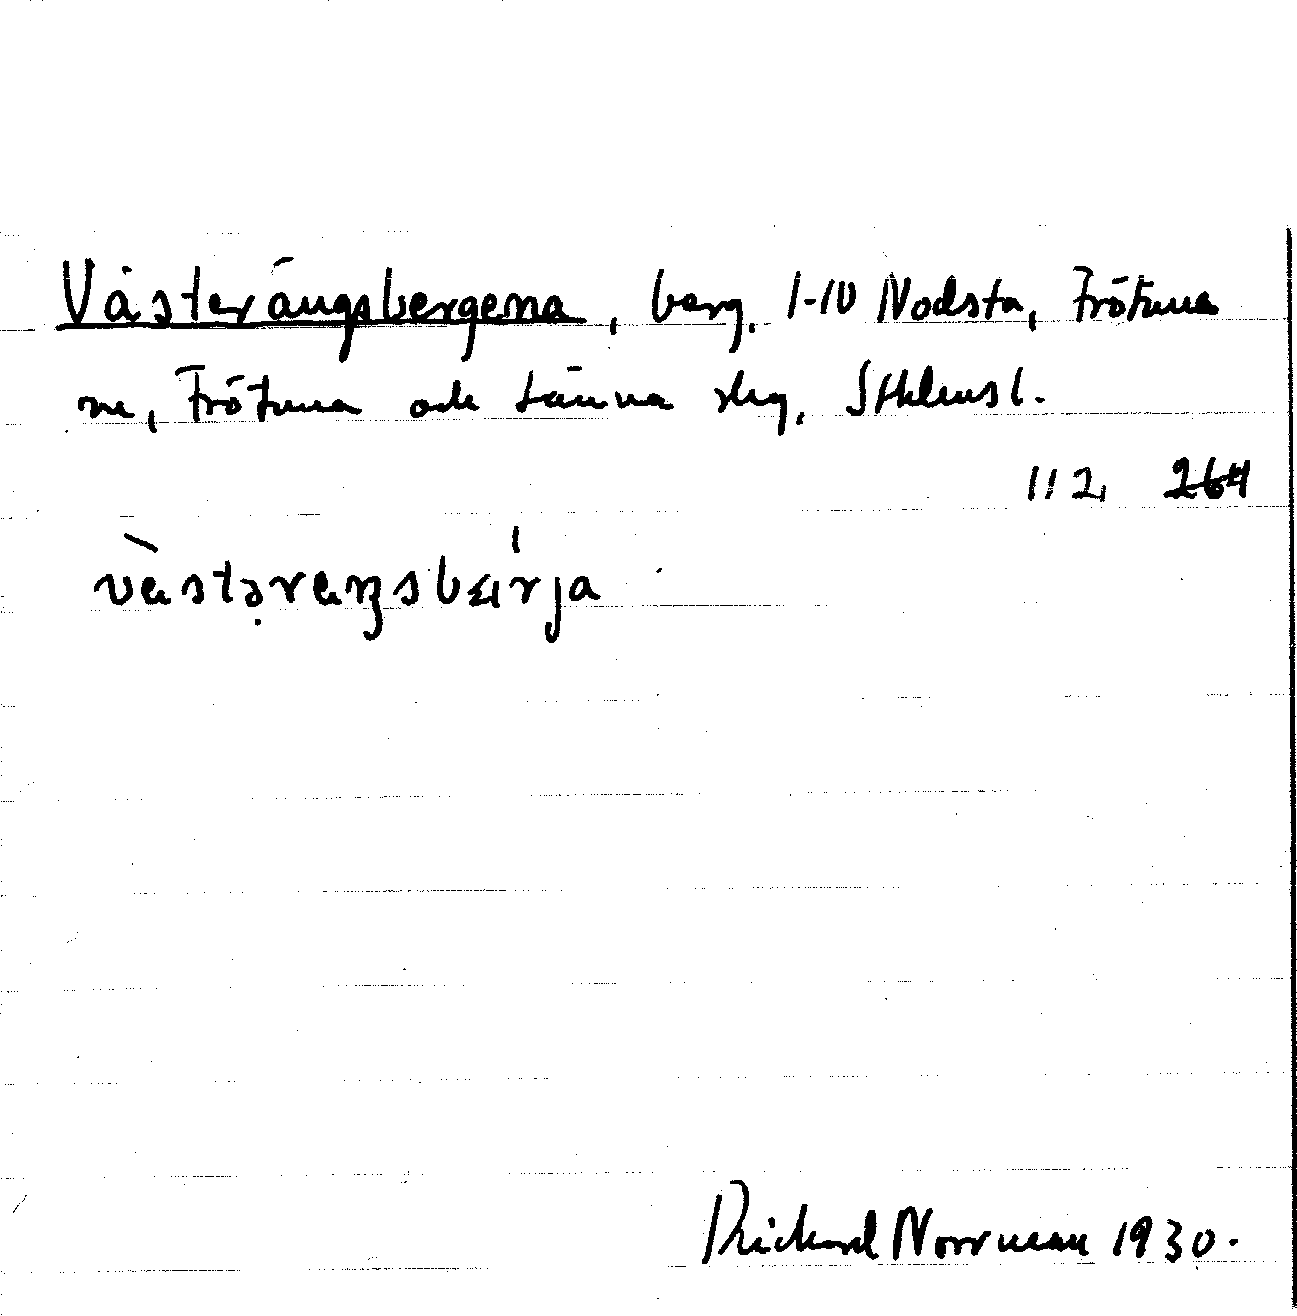 Västerängsbergena, berg, 1-10 Nodsta, Frötuna
sn, Frötuna och Länna skg, Sthlms l.
112 264
västərɛŋsbærja
Rickard Norrman 1930.